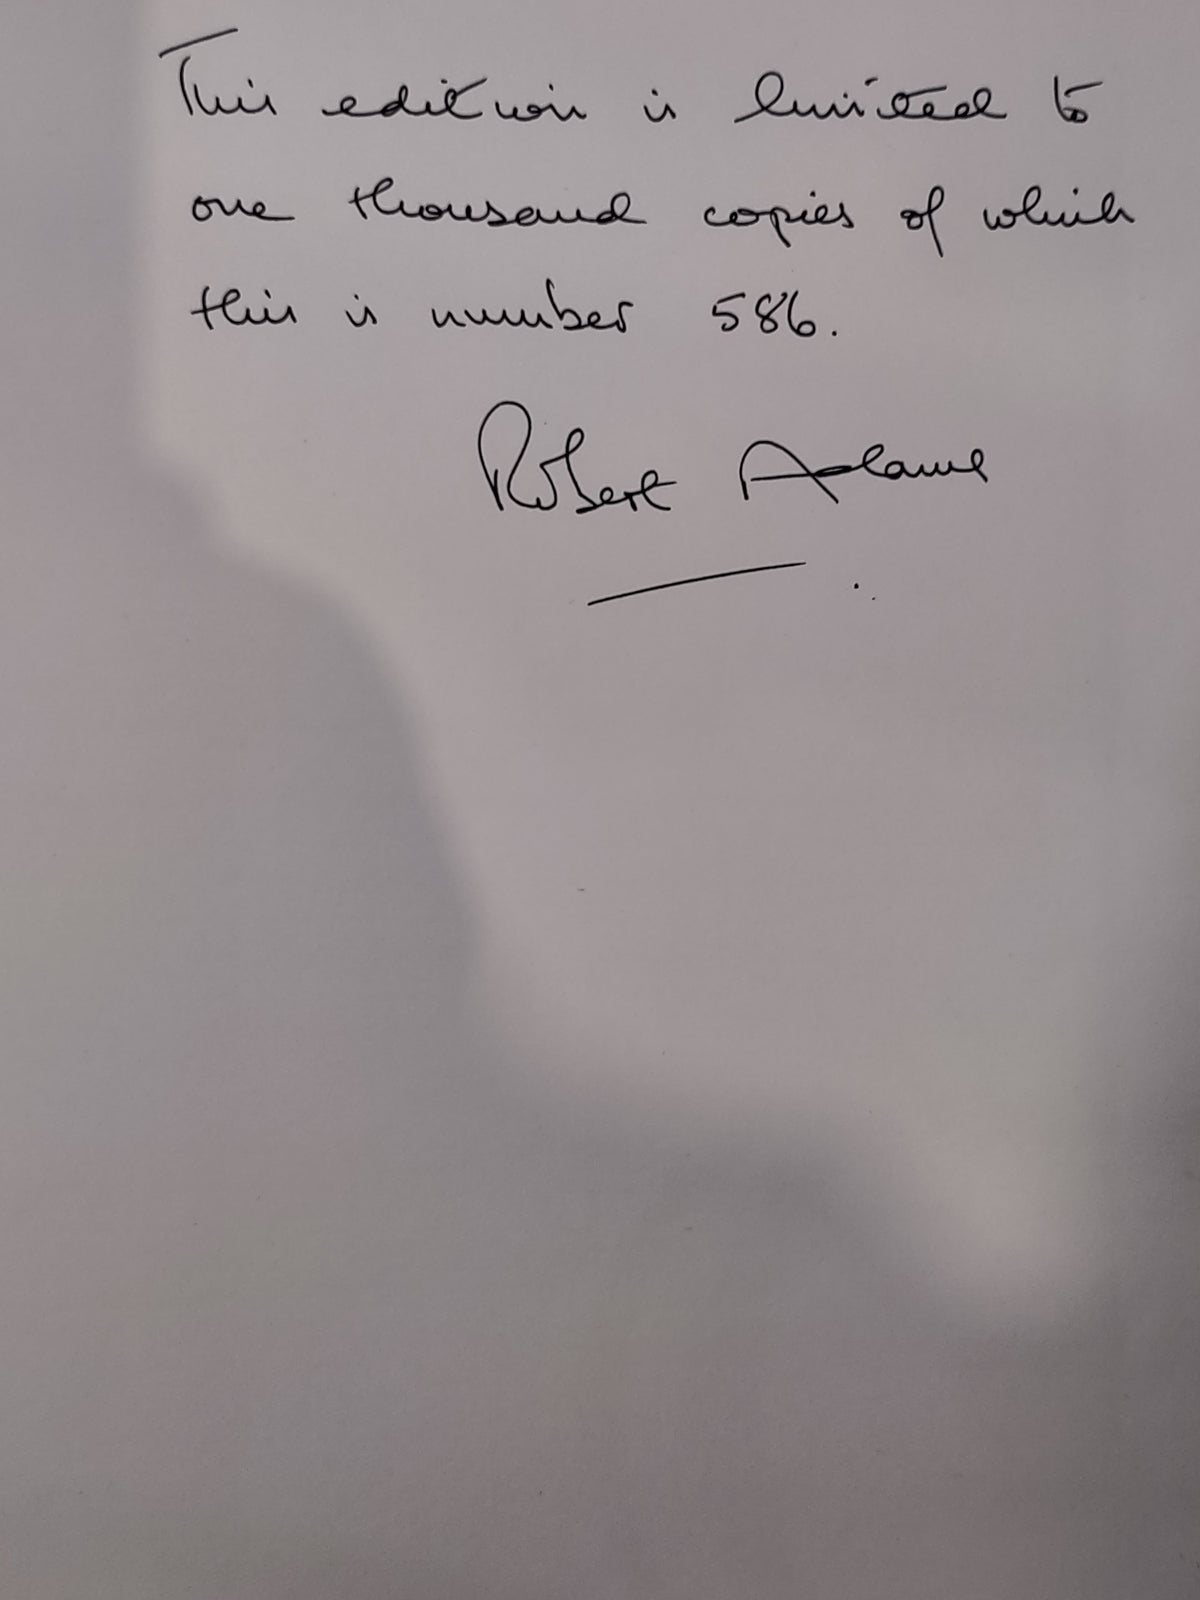 This edition is limited to
one thousand copies of which
this is number 586.
Robert Adams